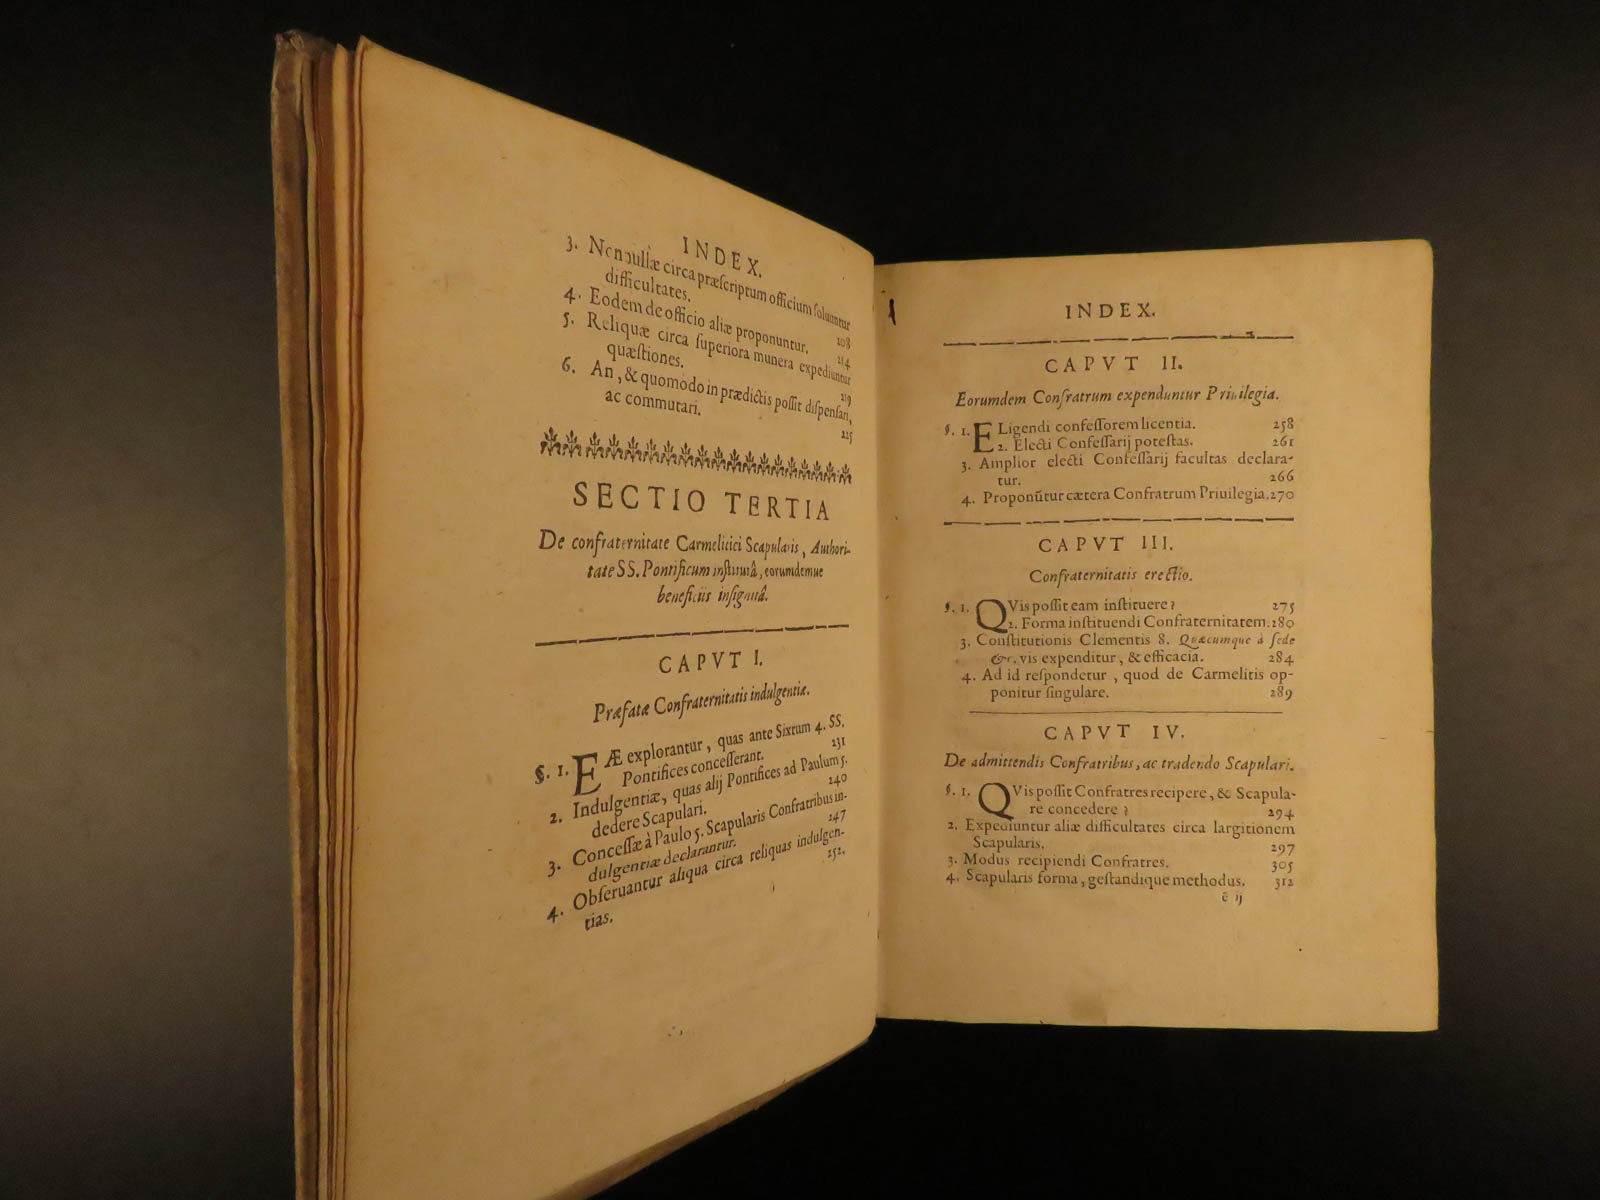 INDEX.
3. Nonnullæ circa præſcriptum officium ſoluuntur
difficultates. 208
4. Eodem de officio aliæ proponuntur. 214
5. Reliquæ circa ſuperiora munera expediuntur
quæſtiones. 219
6. An, & quomodo in prædictis poſſit diſpenſari,
ac commutari. 225
SECTIO TERTIA
De confraternitate Carmelitici Scapularis, Authori-
tate SS. Pontificum inſtitutâ, eorumdemue
beneficiis inſignitâ.
CAPVT I.
Præfatæ Confraternitatis indulgentiæ.
§. 1. EÆ explorantur, quas ante Sixtum 4. SS.
Pontifices conceſſerant. 231
2. Indulgentiæ, quas alij Pontifices ad Paulum 5.
dedere Scapulari. 240
3. Conceſſæ à Paulo 5. Scapularis Confratribus in-
dulgentiæ declarantur. 247
4. Obſeruantur aliqua circa reliquas indulgen-
tias. 252.
INDEX.
CAPVT II.
Eorumdem Confratrum expenduntur Priuilegia.
§. 1. ELigendi confeſſorem licentia. 258
2. Electi Confeſſarij poteſtas. 261
3. Amplior electi Confeſſarij facultas declara-
tur. 266
4. Proponūtur cætera Confratrum Priuilegia. 270
CAPVT III.
Confraternitatis erectio.
§. 1. QVis poſſit eam inſtituere? 275
2. Forma inſtituendi Confraternitatem. 280
3. Conſtitutionis Clementis 8. Quæcumque à ſede
&c. vis expenditur, & efficacia. 284
4. Ad id reſpondetur, quod de Carmelitis op-
ponitur ſingulare. 289
CAPVT IV.
De admittendis Confratribus, ac tradendo Scapulari.
§. 1. QVis poſſit Confratres recipere, & Scapula-
re concedere? 294
2. Expediuntur aliæ difficultates circa largitionem
Scapularis. 297
3. Modus recipiendi Confratres. 305
4. Scapularis forma, geſtandique methodus. 312
ē ij